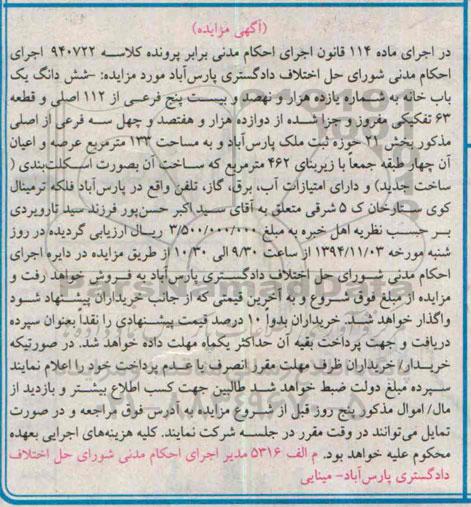 (آگهی مزایده)
در اجرای ماده ۱۱۴ قانون اجرای احکام مدنی برابر پرونده کلاسه ۹۴۰۷۲۲ اجرای
احکام مدنی شورای حل اختلاف دادگستری پارس‌آباد مورد مزایده: -شش دانگ یک
باب خانه به شماره یازده هزار و نهصد و بیست پنج فرعی از ۱۱۲ اصلی و قطعه
۶۳ تفکیکی مفروز و جزا شده از دوازده هزار و هفتصد و چهل سه فرعی از اصلی
مذکور بخش ۲۱ حوزه ثبت ملک پارس‌آباد و به مساحت ۱۳۳ مترمربع عرصه و اعیان
آن چهار طبقه جمعا با زیربنای ۴۶۲ مترمربع که ساخت آن بصورت اسکلت‌بندی (
ساخت جدید) و دارای امتیازات آب، برق، گاز، تلفن واقع در پارس‌آباد فلکه ترمینال
کوی ستارخان ک ۵ شرقی متعلق به آقای سید اکبر حسن‌پور فرزند سید تارویردی
بر حسب نظریه اهل خبره به مبلغ ۳/۵۰۰/۰۰۰/۰۰۰ ریال ارزیابی گردیده در روز
شنبه مورخه ۱۳۹۴/۱۱/۰۳ از ساعت ۹/۳۰ الی ۱۰/۳۰ از طریق مزایده در دایره اجرای
احکام مدنی شورای حل اختلاف دادگستری پارس‌آباد به فروش خواهد رفت و
مزایده از مبلغ فوق شروع و به آخرین قیمتی که از جانب خریداران پیشنهاد شود
واگذار خواهد شد. خریداران بدواً ۱۰ درصد قیمت پیشنهادی را نقداً بعنوان سپرده
دریافت و جهت پرداخت بقیه آن حداکثر یکماه مهلت داده خواهد شد. در صورتیکه
خریدار/ خریداران ظرف مهلت مقرر انصرف یا عدم پرداخت خود را اعلام نمایند
سپرده مبلغ دولت ضبط خواهد شد طالبین جهت کسب اطلاع بیشتر و بازدید از
مال/ اموال مذکور پنج روز قبل از شروع مزایده به آدرس فوق مراجعه و در صورت
تمایل می‌توانند در وقت مقرر در جلسه شرکت نمایند. کلیه هزینه‌های اجرایی بعهده
محکوم علیه خواهد بود. م الف ۵۳۱۶ مدیر اجرای احکام مدنی شورای حل اختلاف
دادگستری پارس‌آباد- مینایی
ParsNamadData